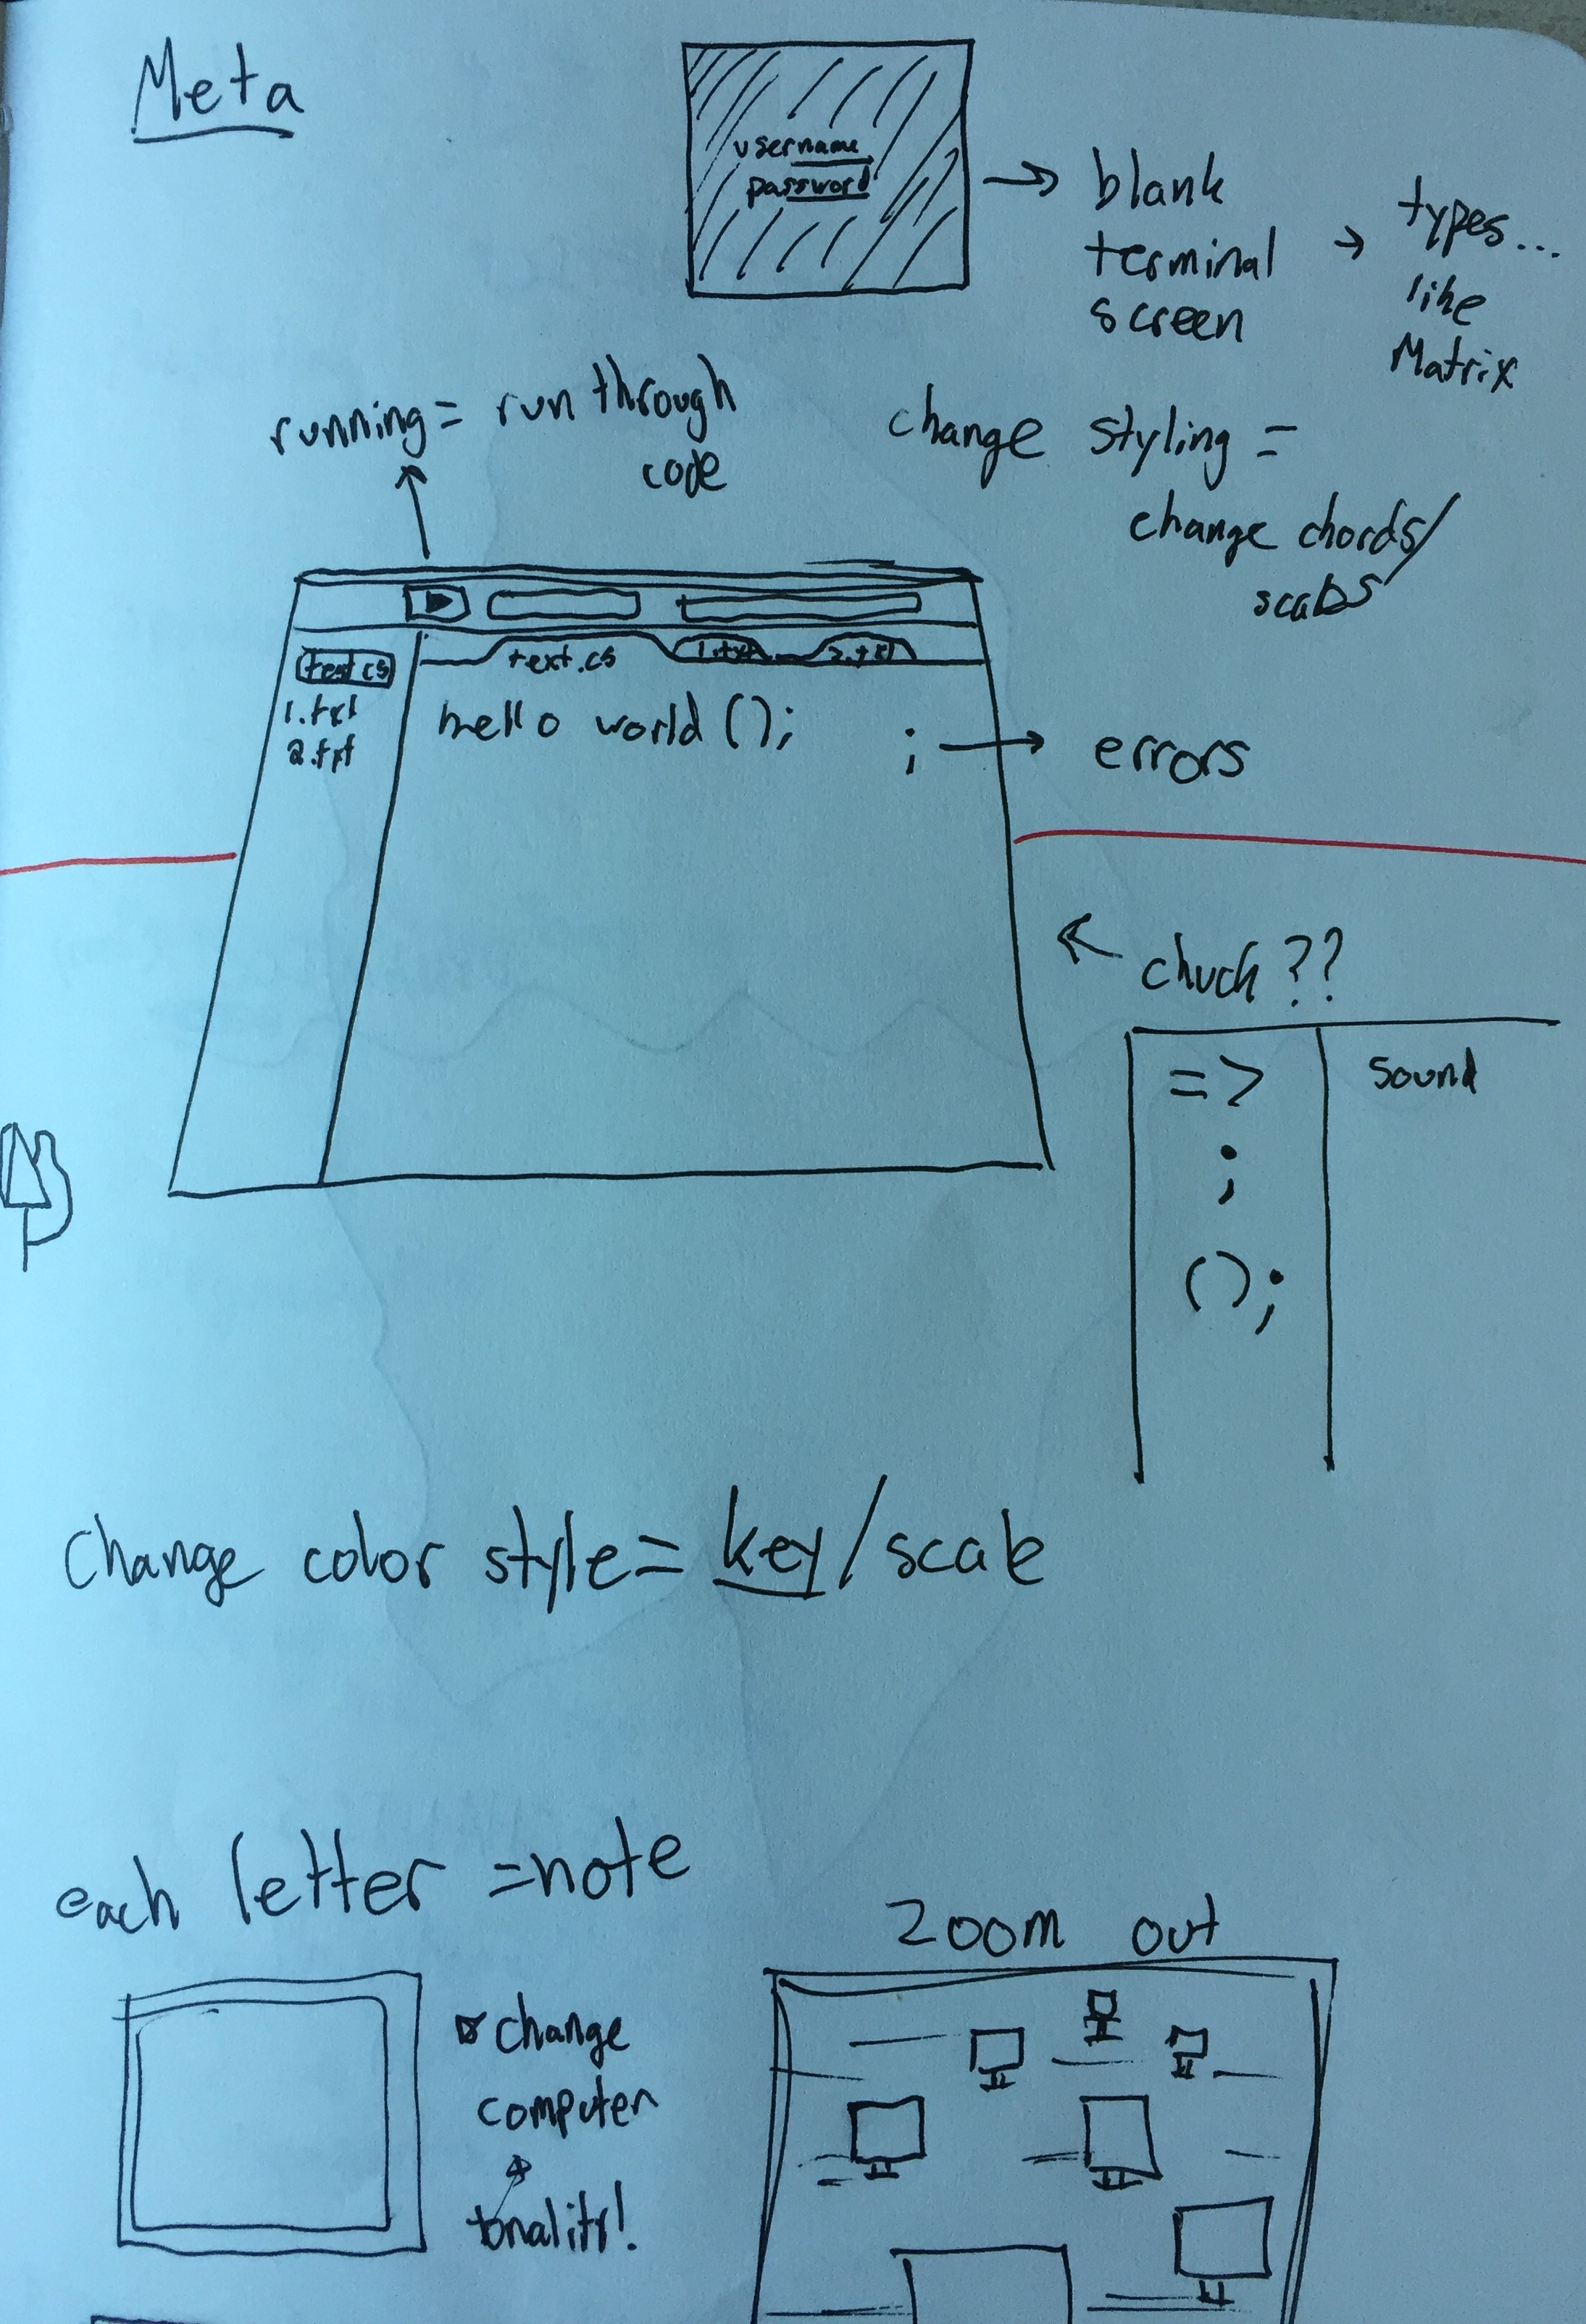 Meta
username
password
→ blank
terminal
screen
→ types...
like
Matrix
running = run through
code
change styling =
change chords/
scales
test.cs
1.txt
2.txt
text.cs
1.txt
2.txt
hello world ();
; → errors
← chuck ??
=>
;
();
sound
Change color style = key/scale
each letter = note
change
computer
tonality!
Zoom out